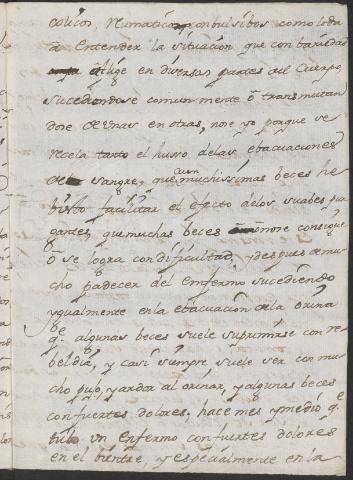 colicos reumaticos conbulsibos como lo da
a entender la situacion que con bariedad
aflige en diversas partes del Cuerpo
sucediendose comunmente ô transmutan
dose de unas en otras, no se yo porque se
recela tanto el husso de las ebacuaciones
de sangre, que aun muchissimas beces he
bisto facilitar el efecto de los suabes pur
gantes, que muchas beces no se consigue
ô se logra con dificultad, y despues de mu
cho padecer del Enfermo sucediendo
ygualmente en la ebacuacion de la orina
qe. algunas beces suele suprimirse con re
beldia, y casi siempre suele ser con mu
cho pujo y ardor al orinar, y algunas beces
con fuertes dolores, hace mes y medio qe
tube un Enfermo con fuertes dolores
en el bientre, y especialmente en la